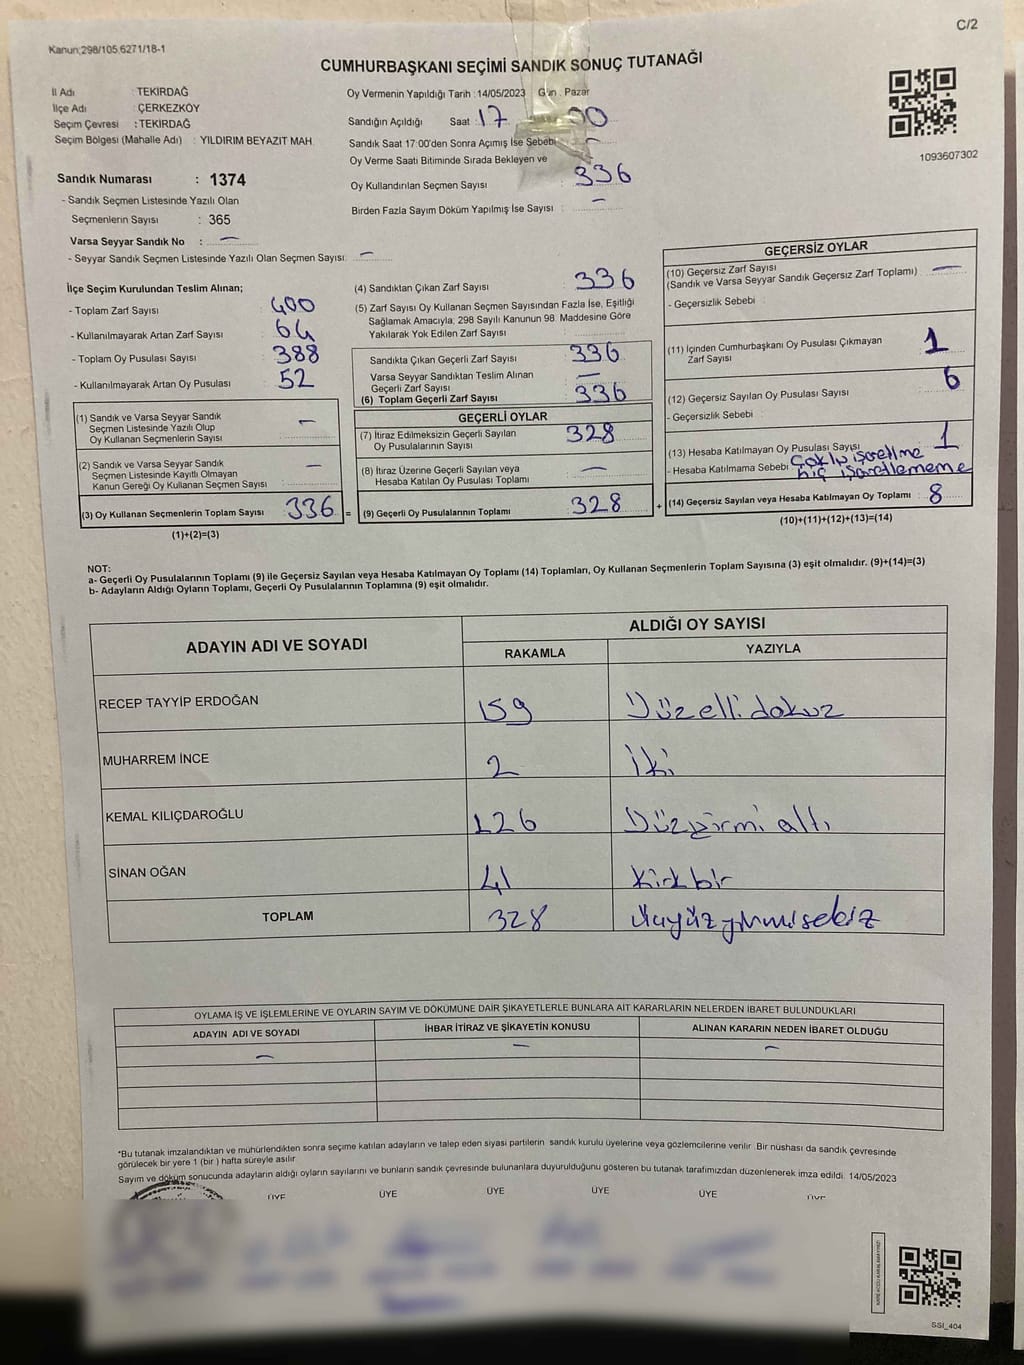 C/2
Kanun;298/105,6271/18-1
CUMHURBAŞKANI SEÇİMİ SANDIK SONUÇ TUTANAĞI
1093607302
İl Adı : TEKİRDAĞ
İlçe Adı : ÇERKEZKÖY
Seçim Çevresi : TEKİRDAĞ
Seçim Bölgesi (Mahalle Adı) : YILDIRIM BEYAZIT MAH
Sandık Numarası : 1374
- Sandık Seçmen Listesinde Yazılı Olan
Seçmenlerin Sayısı : 365
Varsa Seyyar Sandık No : —
- Seyyar Sandık Seçmen Listesinde Yazılı Olan Seçmen Sayısı: —
Oy Vermenin Yapıldığı Tarih : 14/05/2023 Gün : Pazar
Sandığın Açıldığı Saat : 17 00
Sandık Saat 17:00'den Sonra Açımış İse Sebebi —
Oy Verme Saati Bitiminde Sırada Bekleyen ve
Oy Kullandırılan Seçmen Sayısı : 336
Birden Fazla Sayım Döküm Yapılmış İse Sayısı : —
İlçe Seçim Kurulundan Teslim Alınan;
- Toplam Zarf Sayısı : 400
- Kullanılmayarak Artan Zarf Sayısı : 64
- Toplam Oy Pusulası Sayısı : 388
- Kullanılmayarak Artan Oy Pusulası : 52
(1) Sandık ve Varsa Seyyar Sandık
Seçmen Listesinde Yazılı Olup
Oy Kullanan Seçmenlerin Sayısı : —
(2) Sandık ve Varsa Seyyar Sandık
Seçmen Listesinde Kayıtlı Olmayan
Kanun Gereği Oy Kullanan Seçmen Sayısı : —
(3) Oy Kullanan Seçmenlerin Toplam Sayısı : 336 =
(1)+(2)=(3)
(4) Sandıktan Çıkan Zarf Sayısı : 336
(5) Zarf Sayısı Oy Kullanan Seçmen Sayısından Fazla İse, Eşitliği
Sağlamak Amacıyla, 298 Sayılı Kanunun 98. Maddesine Göre
Yakılarak Yok Edilen Zarf Sayısı :
Sandıkta Çıkan Geçerli Zarf Sayısı : 336
Varsa Seyyar Sandıktan Teslim Alınan
Geçerli Zarf Sayısı : —
(6) Toplam Geçerli Zarf Sayısı : 336
GEÇERLİ OYLAR
(7) İtiraz Edilmeksizin Geçerli Sayılan
Oy Pusulalarının Sayısı : 328
(8) İtiraz Üzerine Geçerli Sayılan veya
Hesaba Katılan Oy Pusulası Toplamı : —
(9) Geçerli Oy Pusulalarının Toplamı : 328 +
GEÇERSİZ OYLAR
(10) Geçersiz Zarf Sayısı
(Sandık ve Varsa Seyyar Sandık Geçersiz Zarf Toplamı) : —
- Geçersizlik Sebebi :
(11) İçinden Cumhurbaşkanı Oy Pusulası Çıkmayan
Zarf Sayısı : 1
(12) Geçersiz Sayılan Oy Pusulası Sayısı : 6
- Geçersizlik Sebebi :
(13) Hesaba Katılmayan Oy Pusulası Sayısı : 1
- Hesaba Katılmama Sebebi : Çoklu işaretleme
hiç işaretlememe
(14) Geçersiz Sayılan veya Hesaba Katılmayan Oy Toplamı : 8
(10)+(11)+(12)+(13)=(14)
NOT:
a- Geçerli Oy Pusulalarının Toplamı (9) ile Geçersiz Sayılan veya Hesaba Katılmayan Oy Toplamı (14) Toplamları, Oy Kullanan Seçmenlerin Toplam Sayısına (3) eşit olmalıdır. (9)+(14)=(3)
b- Adayların Aldığı Oyların Toplamı, Geçerli Oy Pusulalarının Toplamına (9) eşit olmalıdır.
ADAYIN ADI VE SOYADI ALDIĞI OY SAYISI
RAKAMLA YAZIYLA
RECEP TAYYİP ERDOĞAN 159 Yüzellidokuz
MUHARREM İNCE 2 İki
KEMAL KILIÇDAROĞLU 126 Yüzyirmi altı
SİNAN OĞAN 41 Kırkbir
TOPLAM 328 Üçyüzyirmisekiz
OYLAMA İŞ VE İŞLEMLERİNE VE OYLARIN SAYIM VE DÖKÜMÜNE DAİR ŞİKAYETLERLE BUNLARA AİT KARARLARIN NELERDEN İBARET BULUNDUKLARI
ADAYIN ADI VE SOYADI İHBAR İTİRAZ VE ŞİKAYETİN KONUSU ALINAN KARARIN NEDEN İBARET OLDUĞU
— — —
*Bu tutanak imzalandıktan ve mühürlendikten sonra seçime katılan adayların ve talep eden siyasi partilerin sandık kurulu üyelerine veya gözlemcilerine verilir. Bir nüshası da sandık çevresinde
görülecek bir yere 1 (bir ) hafta süreyle asılır.
Sayım ve döküm sonucunda adayların aldığı oyların sayılarını ve bunların sandık çevresinde bulunanlara duyurulduğunu gösteren bu tutanak tarafımızdan düzenlenerek imza edildi. 14/05/2023
ÜYE ÜYE ÜYE ÜYE ÜYE ÜYE
SSI_404